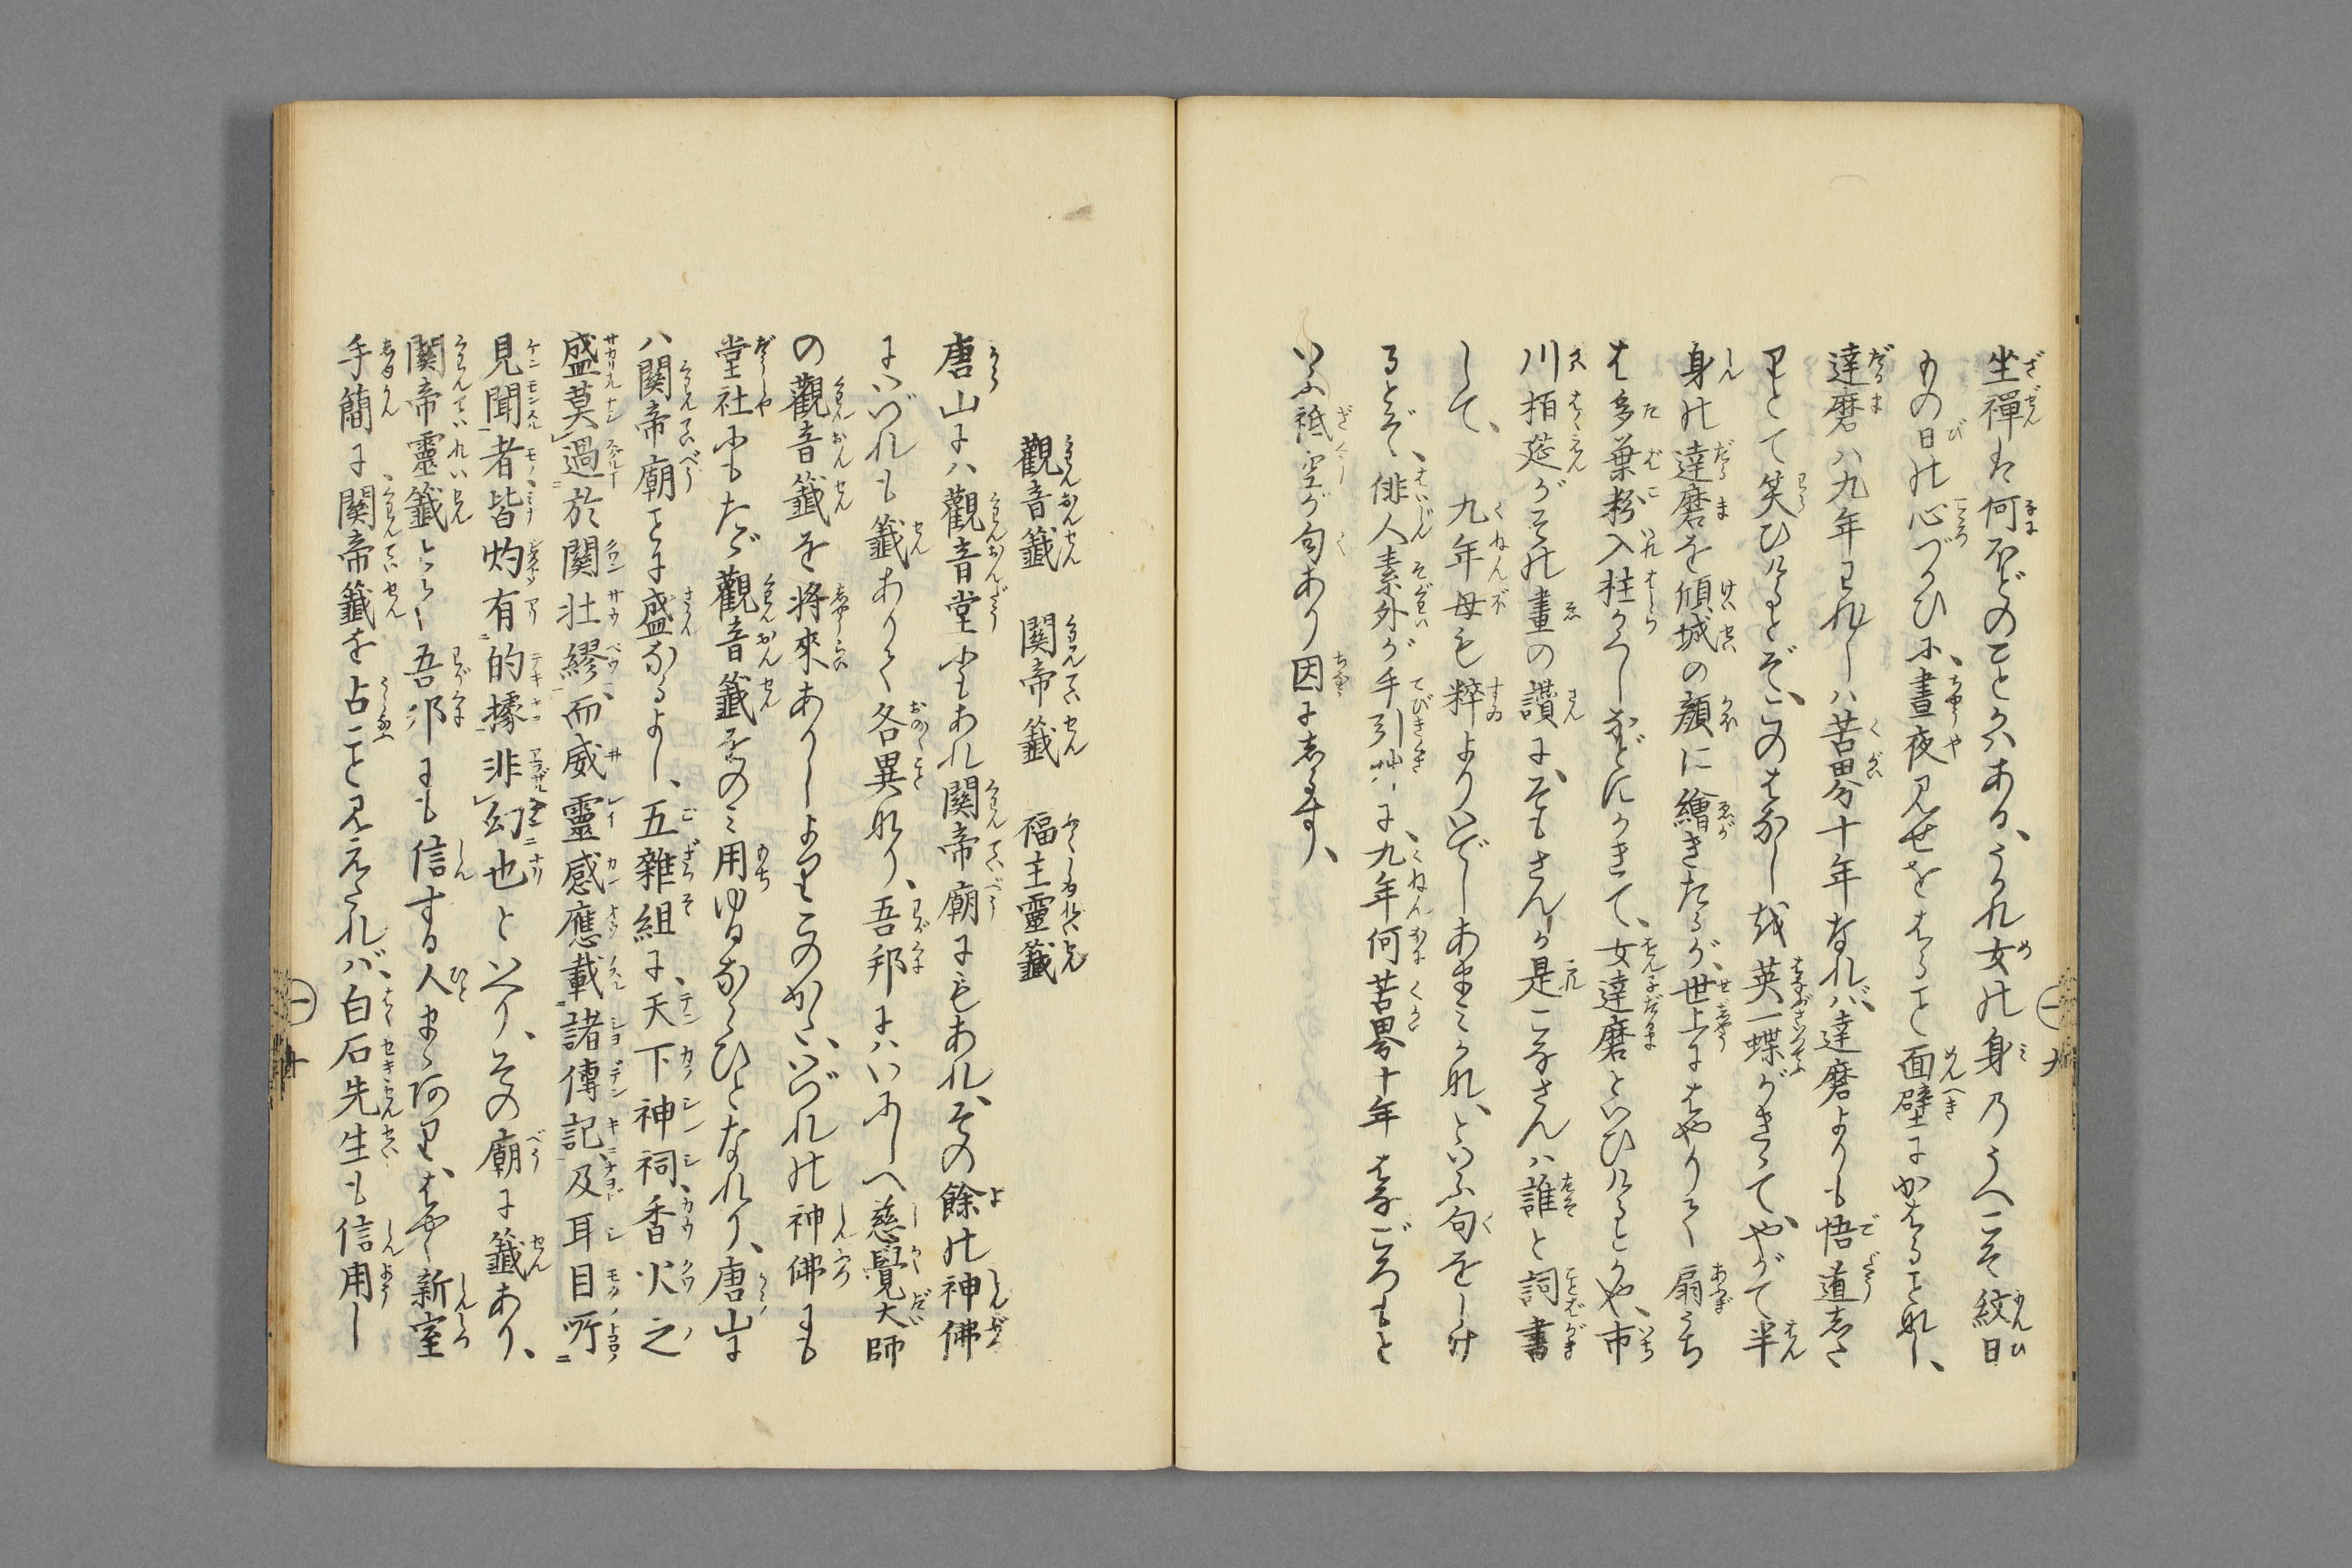 坐禪は何ほどのことかハある、うかれ女の身のうへこそ紋日
ものの日の心づかひに、晝夜見せをはること面壁にかはることなし、
達磨ハ九年われハ苦界十年なれバ、達磨よりも悟道した
りとて笑ひけるとぞ、このはなしを英一蝶がきゝて、やがて半
身の達磨を傾城の顔に繪きたるが、世上にはやりて扇うち
は多葉粉入柱かくしなどにかきて、女達磨といひけるとかや、市
川栢莚がその畫の讚に、そもさんか是こなさんハ誰と詞書
して、九年母も粹よりいでしあまみかな、といふ句をしけ
るとぞ、俳人素外が手引艸に、九年何苦界十年はなごろもと
いふ祗空が句あり因にしるす、
觀音籤　關帝籤　福主靈籤
唐山にハ觀音堂にもあれ關帝廟にもあれ、その餘の神佛
にいづれも籤ありて各異なり、吾邦にハいにしへ慈覺大師
の觀音籤を將來ありしよりこのかた、いづれの神佛にも
堂社にもたゞ觀音籤をのミ用ゆるならひとなれり、唐山に
ハ關帝廟ことに盛なるよし、五雜組に、天下神祠、香火之
盛莫過於關壯繆、而威靈感應載諸傳記、及耳目所
見聞者皆灼有的據非幻也といへり、その廟に籤あり、
關帝靈籤といふ、吾邦にも信する人まゝ阿り、はやく新室
手簡に、關帝籤を占こと見えたれバ、白石先生も信用し
一 九
一 十